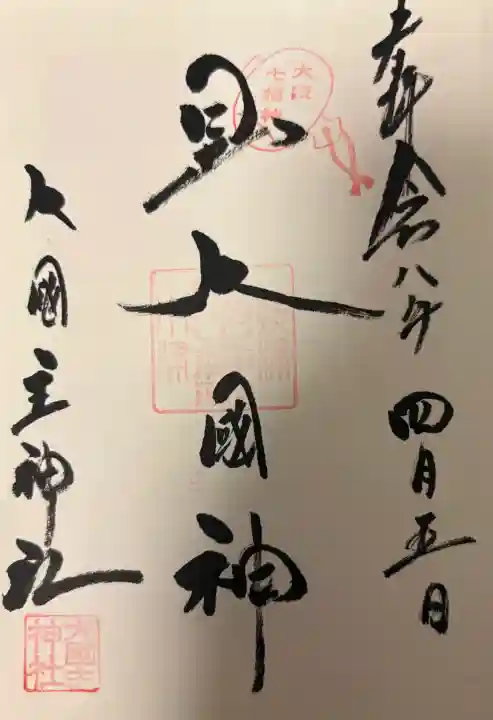 奉拝 令和八年 四月五日
大阪
七福神
日出大國神
大國主神社
大國主
神社